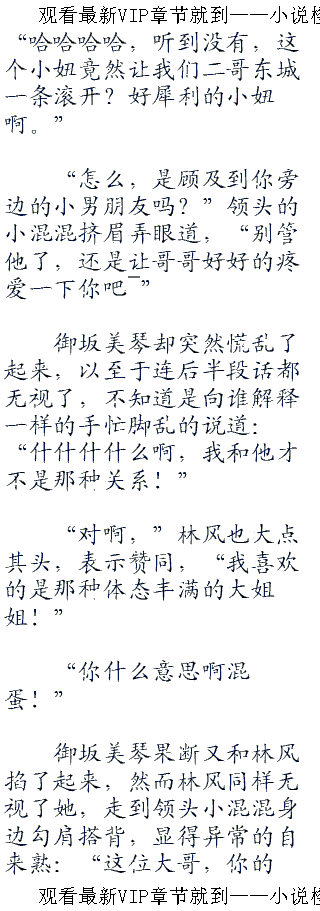 观看最新VIP章节就到——小说
“哈哈哈哈，听到没有，这
个小妞竟然让我们二哥东城
一条滚开？好犀利的小妞
啊。”
“怎么，是顾及到你旁
边的小男朋友吗？”领头的
小混混挤眉弄眼道，“别管
他了，还是让哥哥好好的疼
爱一下你吧~”
御坂美琴却突然慌乱了
起来，以至于连后半段话都
无视了，不知道是向谁解释
一样的手忙脚乱的说道：
“什什什什么啊，我和他才
不是那种关系！”
“对啊，”林风也大点
其头，表示赞同，“我喜欢
的是那种体态丰满的大姐
姐！”
“你什么意思啊混
蛋！”
御坂美琴果断又和林风
掐了起来，然而林风同样无
视了她，走到领头小混混身
边勾肩搭背，显得异常的自
来熟：“这位大哥，你的
观看最新VIP章节就到——小说